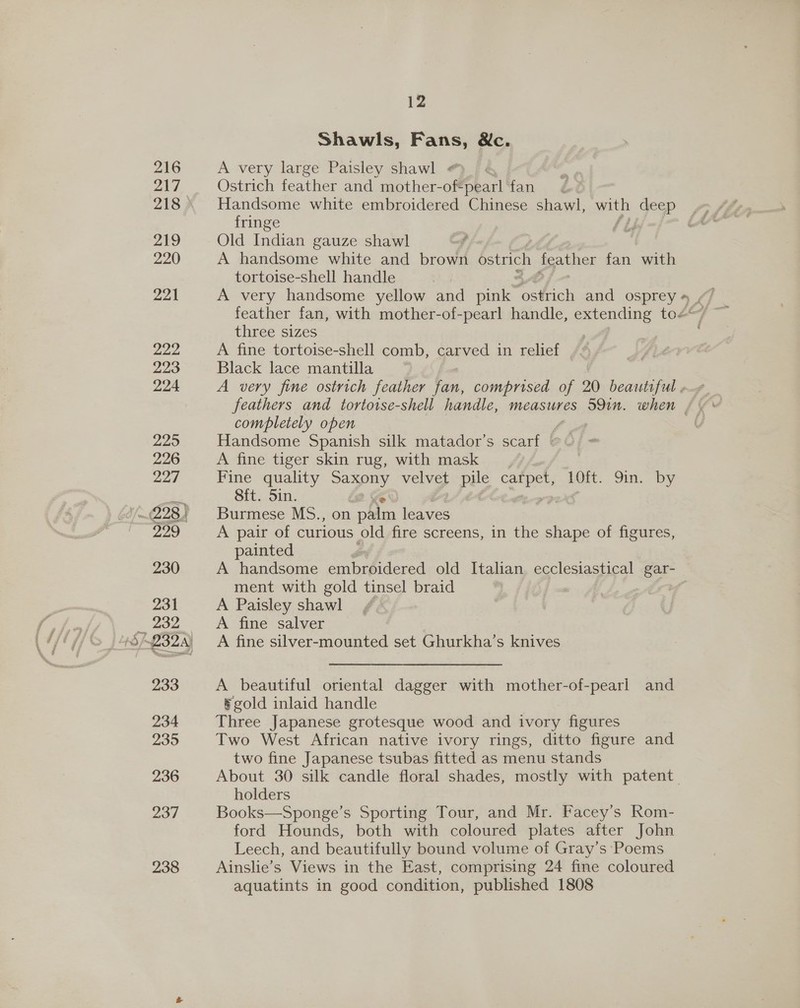 12
Shawls, Fans, &c.
216 A very large Paisley shawl
217 Ostrich feather and mother-of-pearl fan
218 Handsome white embroidered Chinese shawl, with deep
fringe
219 Old Indian gauze shawl
220 A handsome white and brown ostrich feather fan with
tortoise-shell handle
221 A very handsome yellow and pink ostrich and osprey
feather fan, with mother-of-pearl handle, extending to
three sizes
222 A fine tortoise-shell comb, carved in relief
223 Black lace mantilla
224 A very fine ostrich feather fan, comprised of 20 beautiful
feathers and tortoise-shell handle, measures 59in. when
completely open
225 Handsome Spanish silk matador's scarf
226 A fine tiger skin rug, with mask
227 Fine quality Saxony velvet pile carpet, 10ft. 9in. by
8ft. 5in.
228 Burmese MS., on palm leaves
229 A pair of curious old fire screens, in the shape of figures,
painted
230 A handsome embroidered old Italian ecclesiastical gar-
ment with gold tinsel braid
231 A Paisley shawl
232 A fine salver
232A A fine silver-mounted set Ghurkha's knives
233 A beautiful oriental dagger with mother-of-pearl and
gold inlaid handle
234 Three Japanese grotesque wood and ivory figures
235 Two West African native ivory rings, ditto figure and
two fine Japanese tsubas fitted as menu stands
236 About 30 silk candle floral shades, mostly with patent
holders
237 Books—Sponge's Sporting Tour, and Mr. Facey's Rom-
ford Hounds, both with coloured plates after John
Leech, and beautifully bound volume of Gray's Poems
238 Ainslie's Views in the East, comprising 24 fine coloured
aquatints in good condition, published 1808